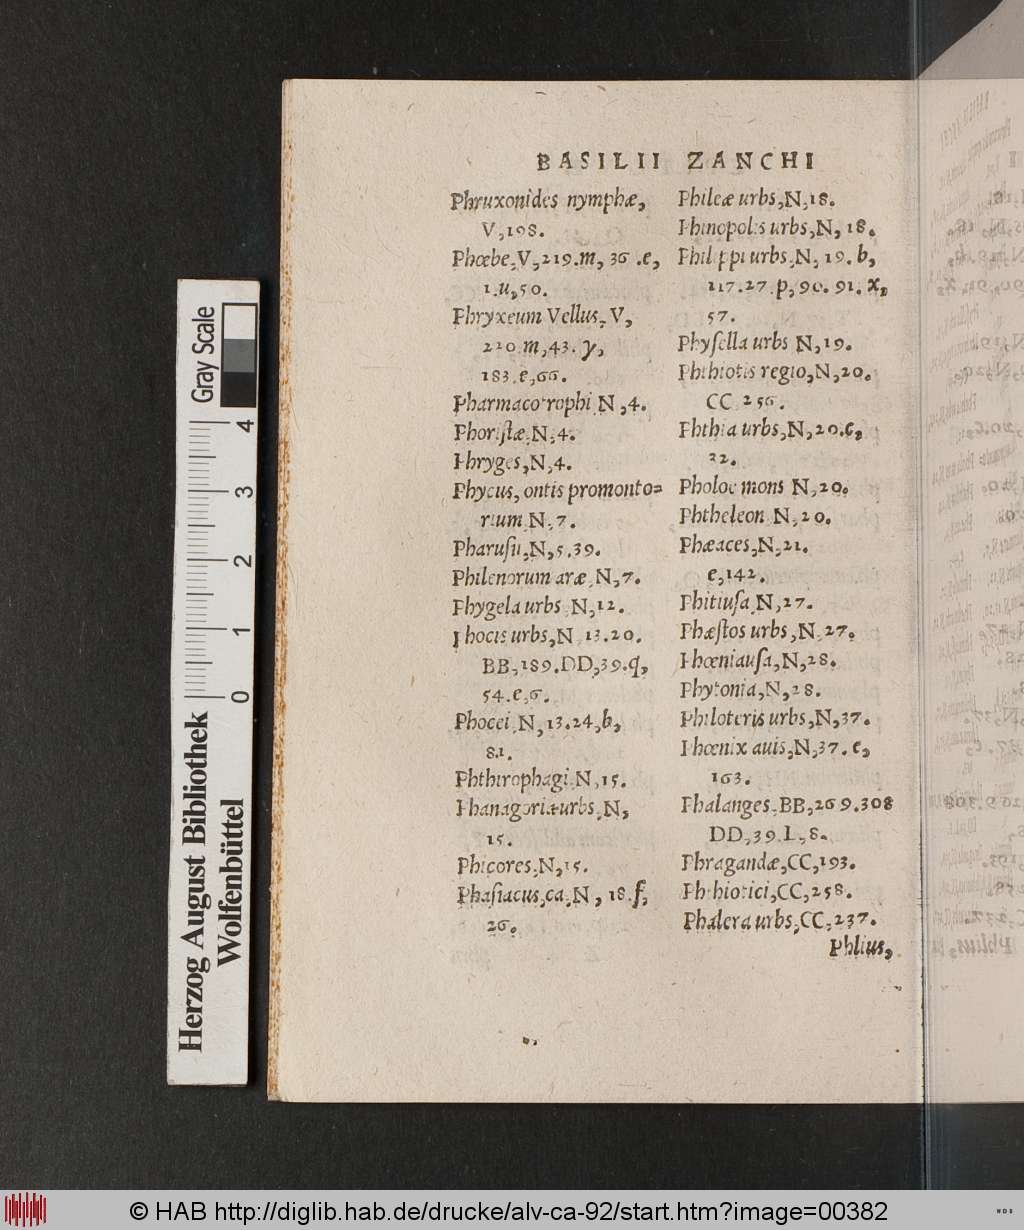 BASILII ZANCHI
Phruxonides nymphæ,
V, 198.
Phœbe, V, 219. m, 36. e,
1. u, 50.
Phryxeum Vellus, V,
220. m, 43. y,
183. e, 66.
Pharmacotrophi N, 4.
Phoristæ, N, 4.
Phryges, N, 4.
Phycus, ontis promonto=
rium, N, 7.
Pharusii, N, 5. 39.
Philenorum aræ, N, 7.
Phygela urbs, N, 12.
Phocis urbs, N, 13. 20.
BB, 189. DD, 39. q,
54. e, 6.
Phocei, N, 13. 24, b,
81.
Phthirophagi, N, 15.
Phanagoria urbs, N,
15.
Phicores, N, 15.
Phasiacus, ca, N, 18. f,
26.
Phileæ urbs, N, 18.
Phinopolis urbs, N, 18.
Philippi urbs, N, 19. b,
117. 27. p, 90. 91. x,
57.
Physella urbs N, 19.
Phthiotis regio, N, 20.
CC 256.
Phthia urbs, N, 20. c,
32.
Pholoe mons N, 20.
Phtheleon N, 20.
Phæaces, N, 21.
e, 142.
Phitiusa, N, 27.
Phæstos urbs, N, 27.
Phœniausa, N, 28.
Phytonia, N, 28.
Philoteris urbs, N, 37.
Phœnix auis, N, 37. e,
163.
Phalanges, BB, 269. 308
DD, 39. L, 8.
Phragandæ, CC, 193.
Phthiotici, CC, 258.
Phalera urbs, CC, 237.
Phlius,
Gray Scale
0 1 2 3 4
Herzog August Bibliothek
Wolfenbüttel
© HAB http://diglib.hab.de/drucke/alv-ca-92/start.htm?image=00382